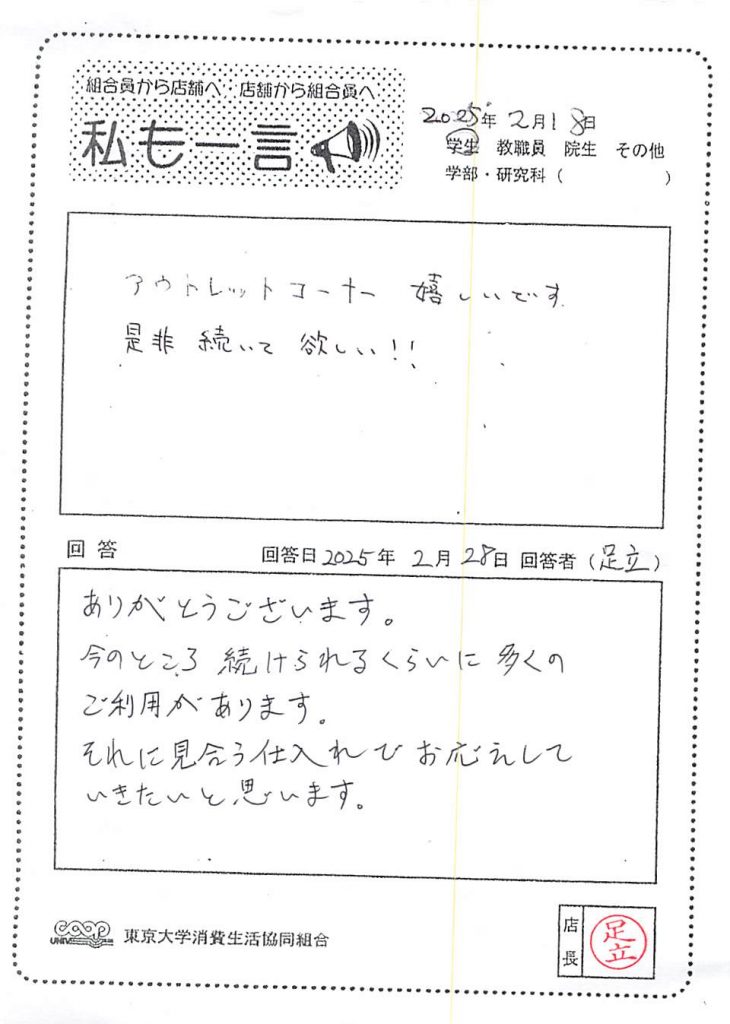 組合員から店舗へ、店舗から組合員へ
私も一言
2025年 2月18日
学生 教職員 院生 その他
学部・研究科( )
アウトレットコーナー 嬉しいです
是非 続いて 欲しい!!
回答 回答日2025年 2月 28日 回答者(足立)
ありがとうございます。
今のところ 続けられるくらいに 多くの
ご利用があります。
それに見合う仕入れで お応えして
いきたいと思います。
COOP
UNIV
東京大学消費生活協同組合
店長
足立